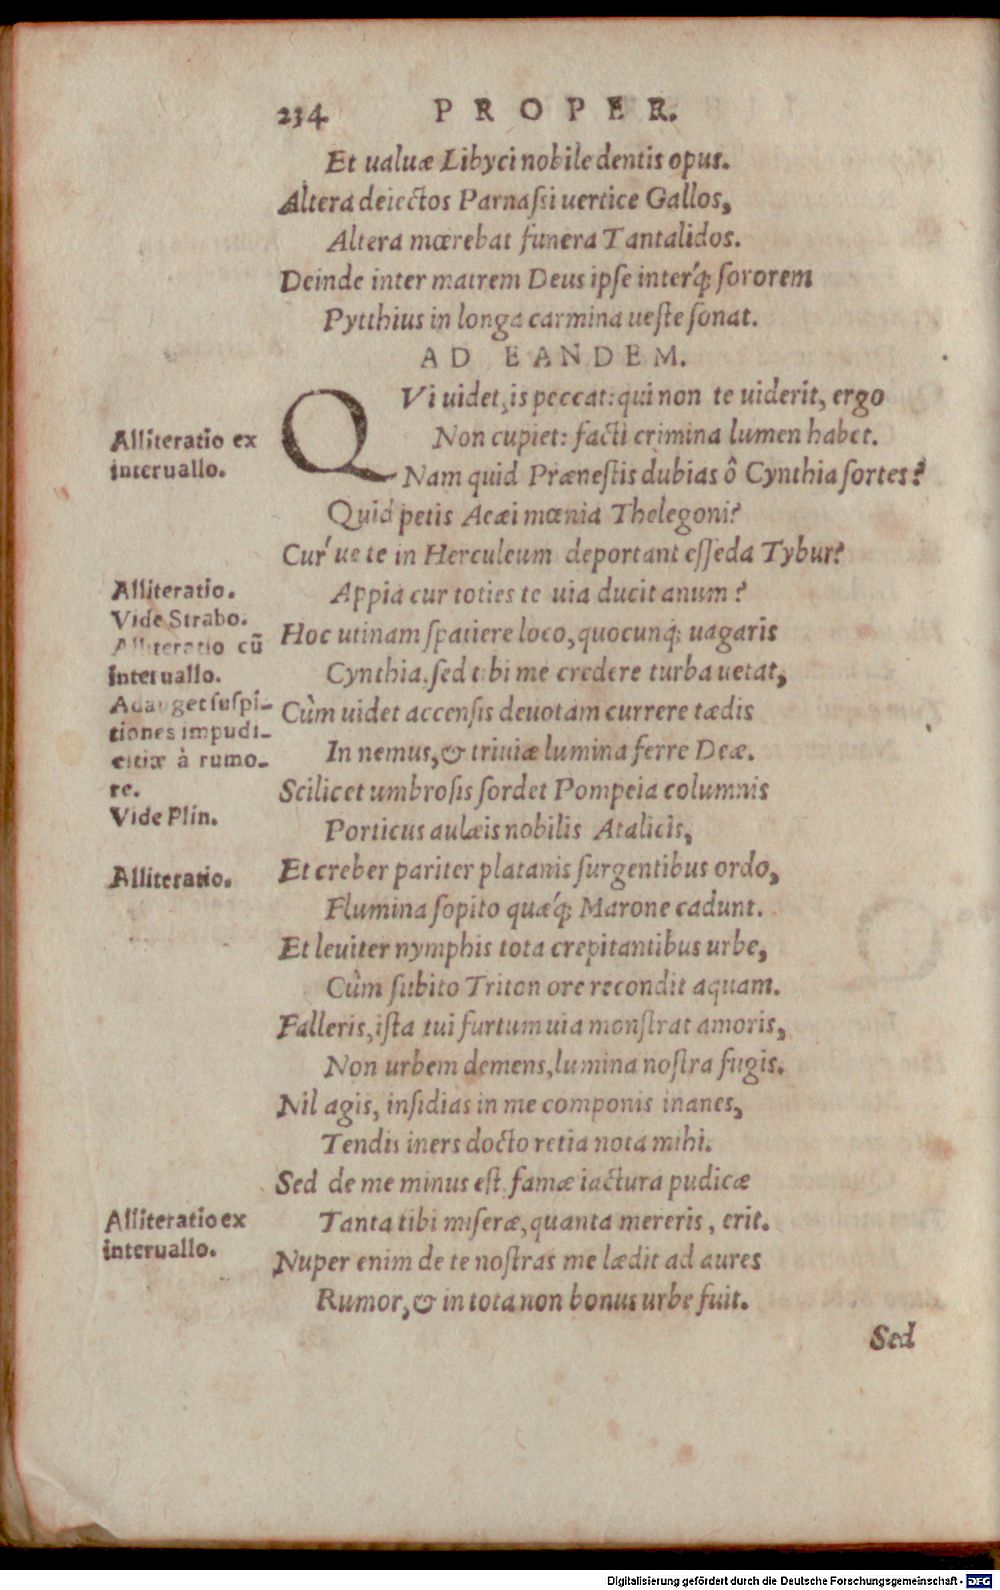 234 PROPER.
Et ualuæ Libyci nobile dentis opus.
Altera deiectos Parnaſsi uertice Gallos,
Altera mœrebat funera Tantalidos.
Deinde inter matrem Deus ipſe interq́; ſororem
Pytthius in longa carmina ueſte ſonat.
AD EANDEM.
QVi uidet, is peccat: qui non te uiderit, ergo
Non cupiet: facti crimina lumen habet.
Nam quid Præneſtis dubias ô Cynthia ſortes?
Quid petis Aeæi mœnia Thelegoni?
Cur'ue te in Herculeum deportant eſſeda Tybur?
Appia cur toties te uia ducit anum?
Hoc utinam ſpatiere loco, quocunq; uagaris
Cynthia. ſed tibi me credere turba uetat,
Cùm uidet accenſis deuotam currere tædis
In nemus, & triuiæ lumina ferre Deæ.
Scilicet umbroſis ſordet Pompeia columnis
Porticus aulæis nobilis Atalicis,
Et creber pariter platanis ſurgentibus ordo,
Flumina ſopito quæq́; Marone cadunt.
Et leuiter nymphis tota crepitantibus urbe,
Cùm ſubito Triton ore recondit aquam.
Falleris, iſta tui furtum uia monſtrat amoris,
Non urbem demens, lumina noſtra fugis.
Nil agis, inſidias in me componis inanes,
Tendis iners docto retia nota mihi.
Sed de me minus eſt. famæ iactura pudicæ
Tanta tibi miſeræ, quanta mereris, erit.
Nuper enim de te noſtras me lædit ad aures
Rumor, & in tota non bonus urbe fuit.
Sed
Alliteratio ex
interuallo.
Alliteratio.
Vide Strabo.
Alliteratio cũ
interuallo.
Adauget ſuſpi-
tiones impudi-
citiæ à rumo-
re.
Vide Plin.
Alliteratio.
Alliteratio ex
interuallo.
Digitalisierung gefördert durch die Deutsche Forschungsgemeinschaft - DFG